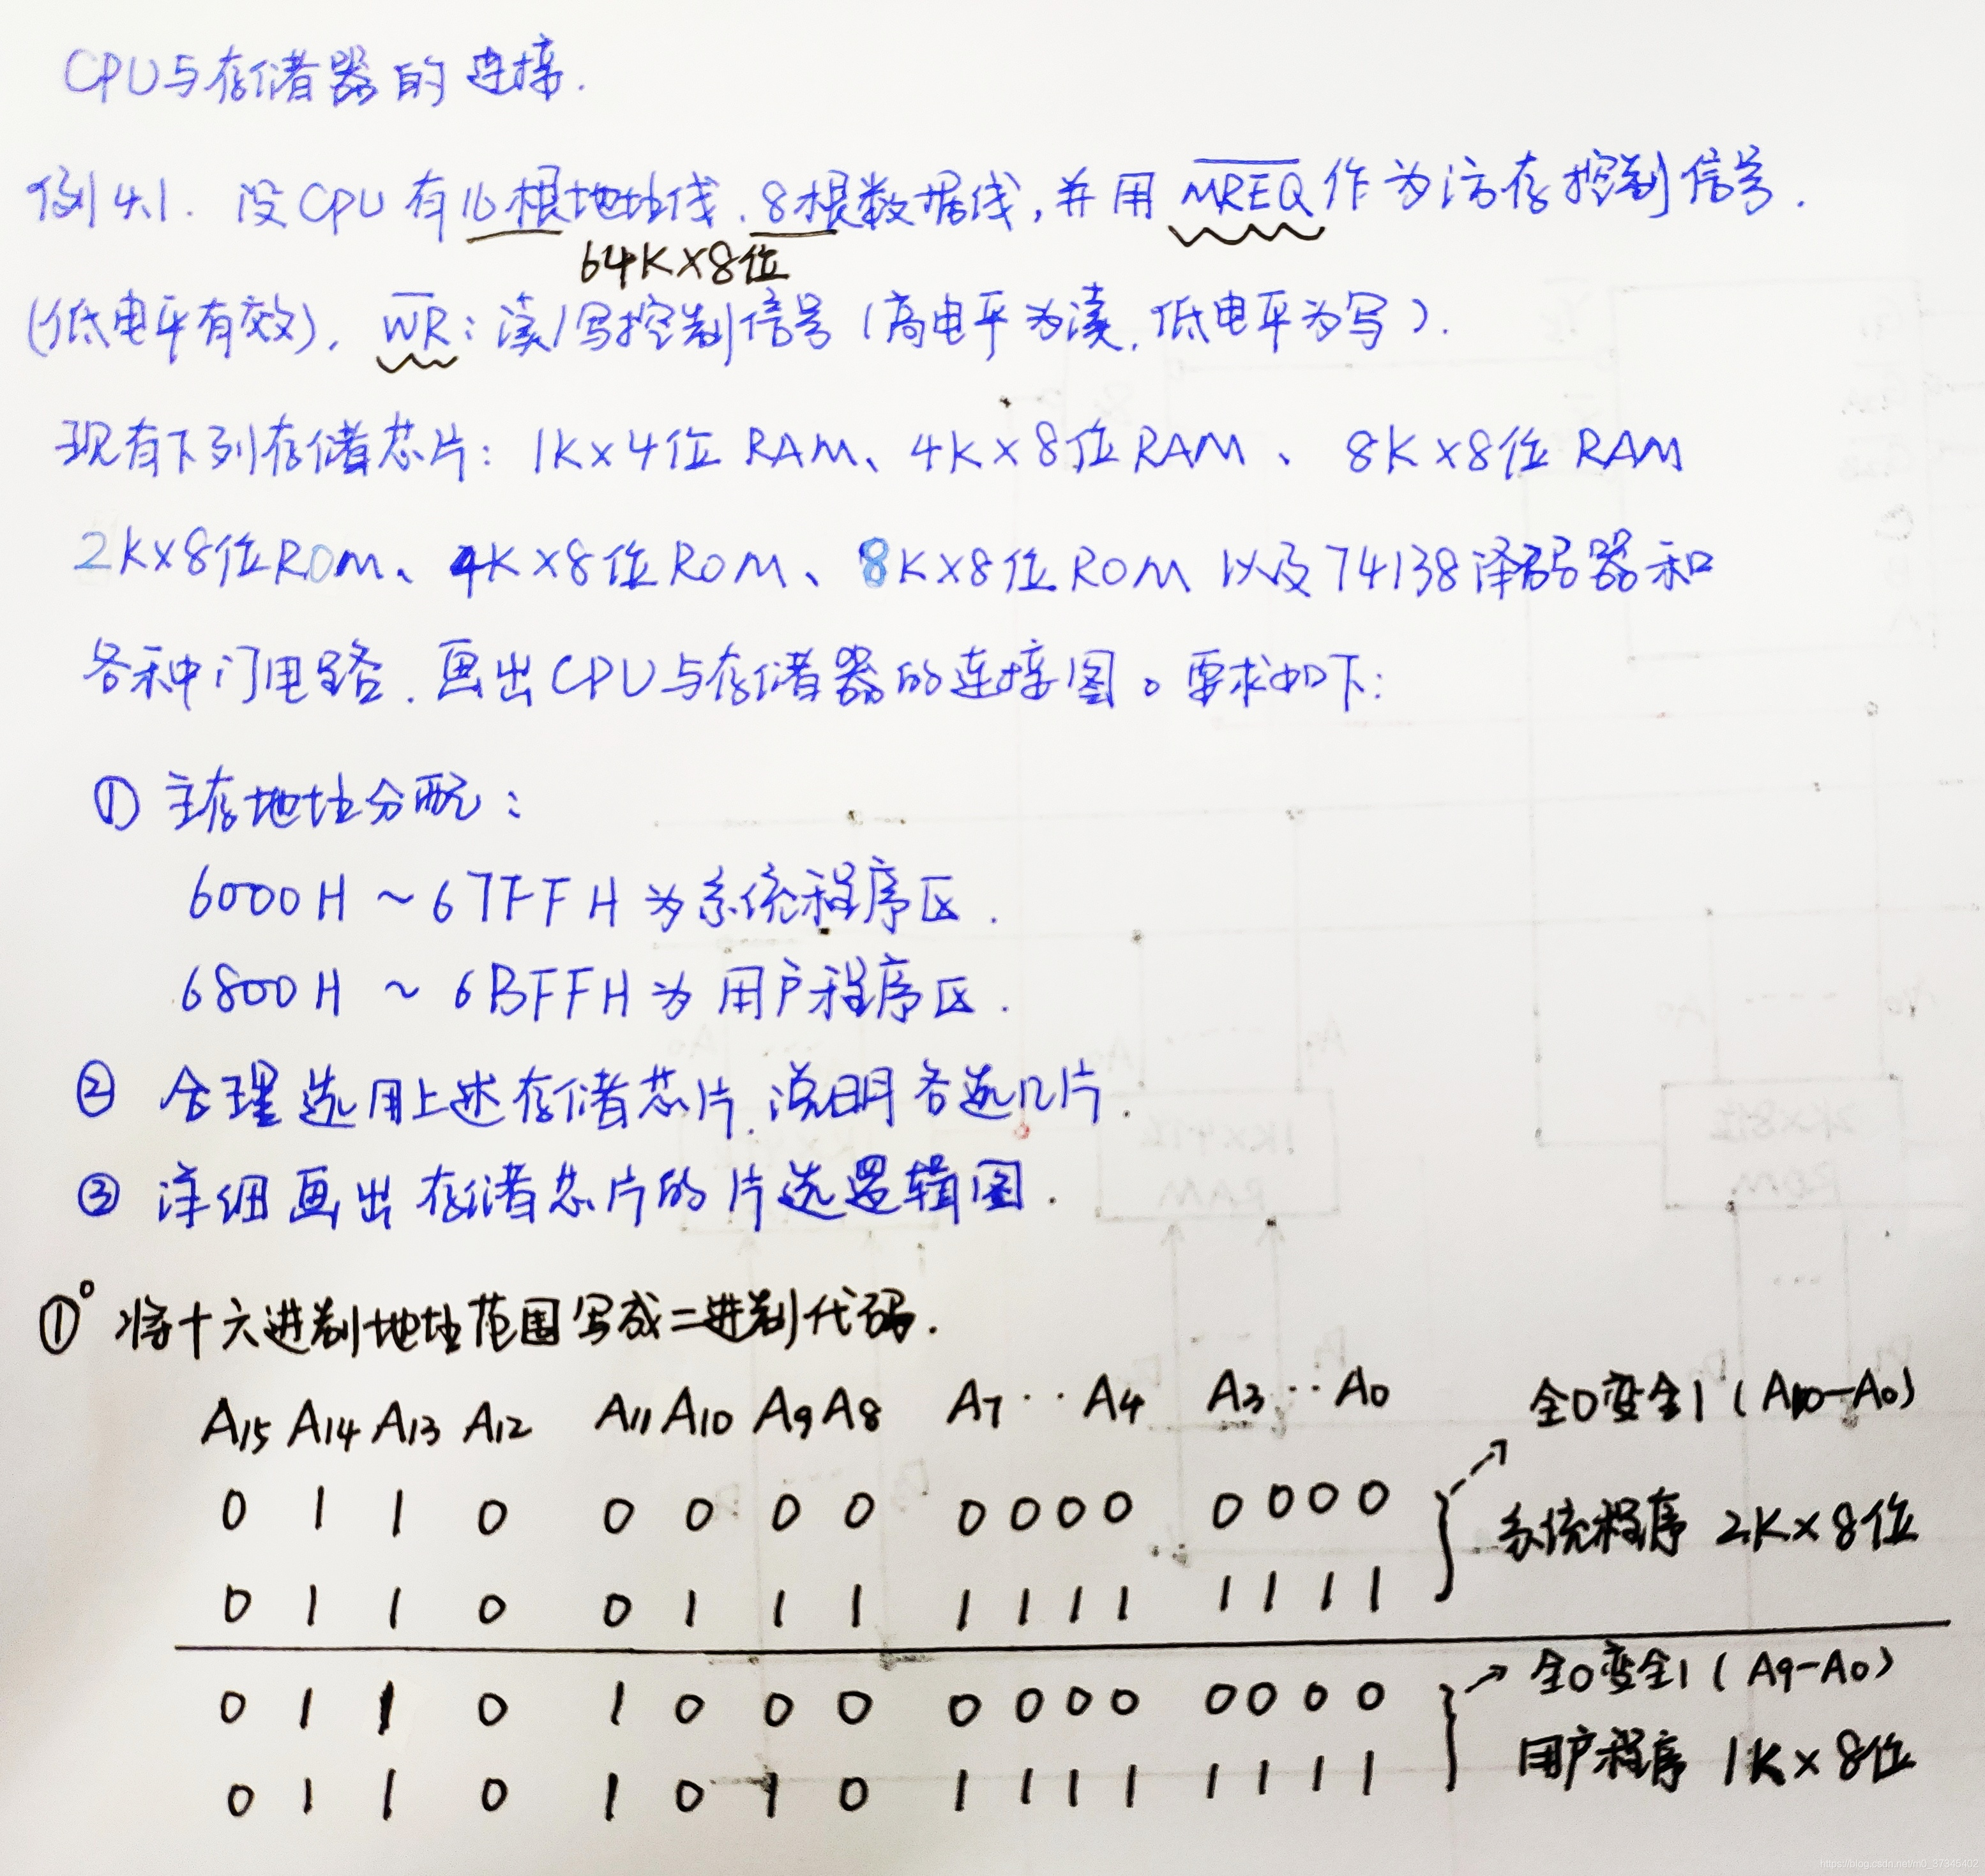 CPU与存储器的连接.
例4.1. 设CPU有16根地址线、8根数据线,并用MREQ作为访存控制信号.
64K×8位
(低电平有效), WR:读/写控制信号(高电平为读,低电平为写).
现有下列存储芯片: 1K×4位 RAM、4K×8位 RAM、8K×8位 RAM
2K×8位ROM、4K×8位ROM、8K×8位ROM 以及74138译码器和
各种门电路.画出CPU与存储器的连接图。要求如下:
① 主存地址分配:
6000H ~ 67FFH 为系统程序区.
6800H ~ 6BFFH 为用户程序区.
② 合理选用上述存储芯片.说明各选几片.
③ 详细画出存储芯片的片选逻辑图.
①° 将十六进制地址范围写成二进制代码.
A15 A14 A13 A12 A11 A10 A9 A8 A7··A4 A3··A0 全0变全1(A10-A0)
0 1 1 0 0 0 0 0 0000 0000
系统程序 2K×8位
0 1 1 0 0 1 1 1 1111 1111
全0变全1(A9-A0)
0 1 1 0 1 0 0 0 0000 0000
用户程序 1K×8位
0 1 1 0 1 0 1 0 1111 1111